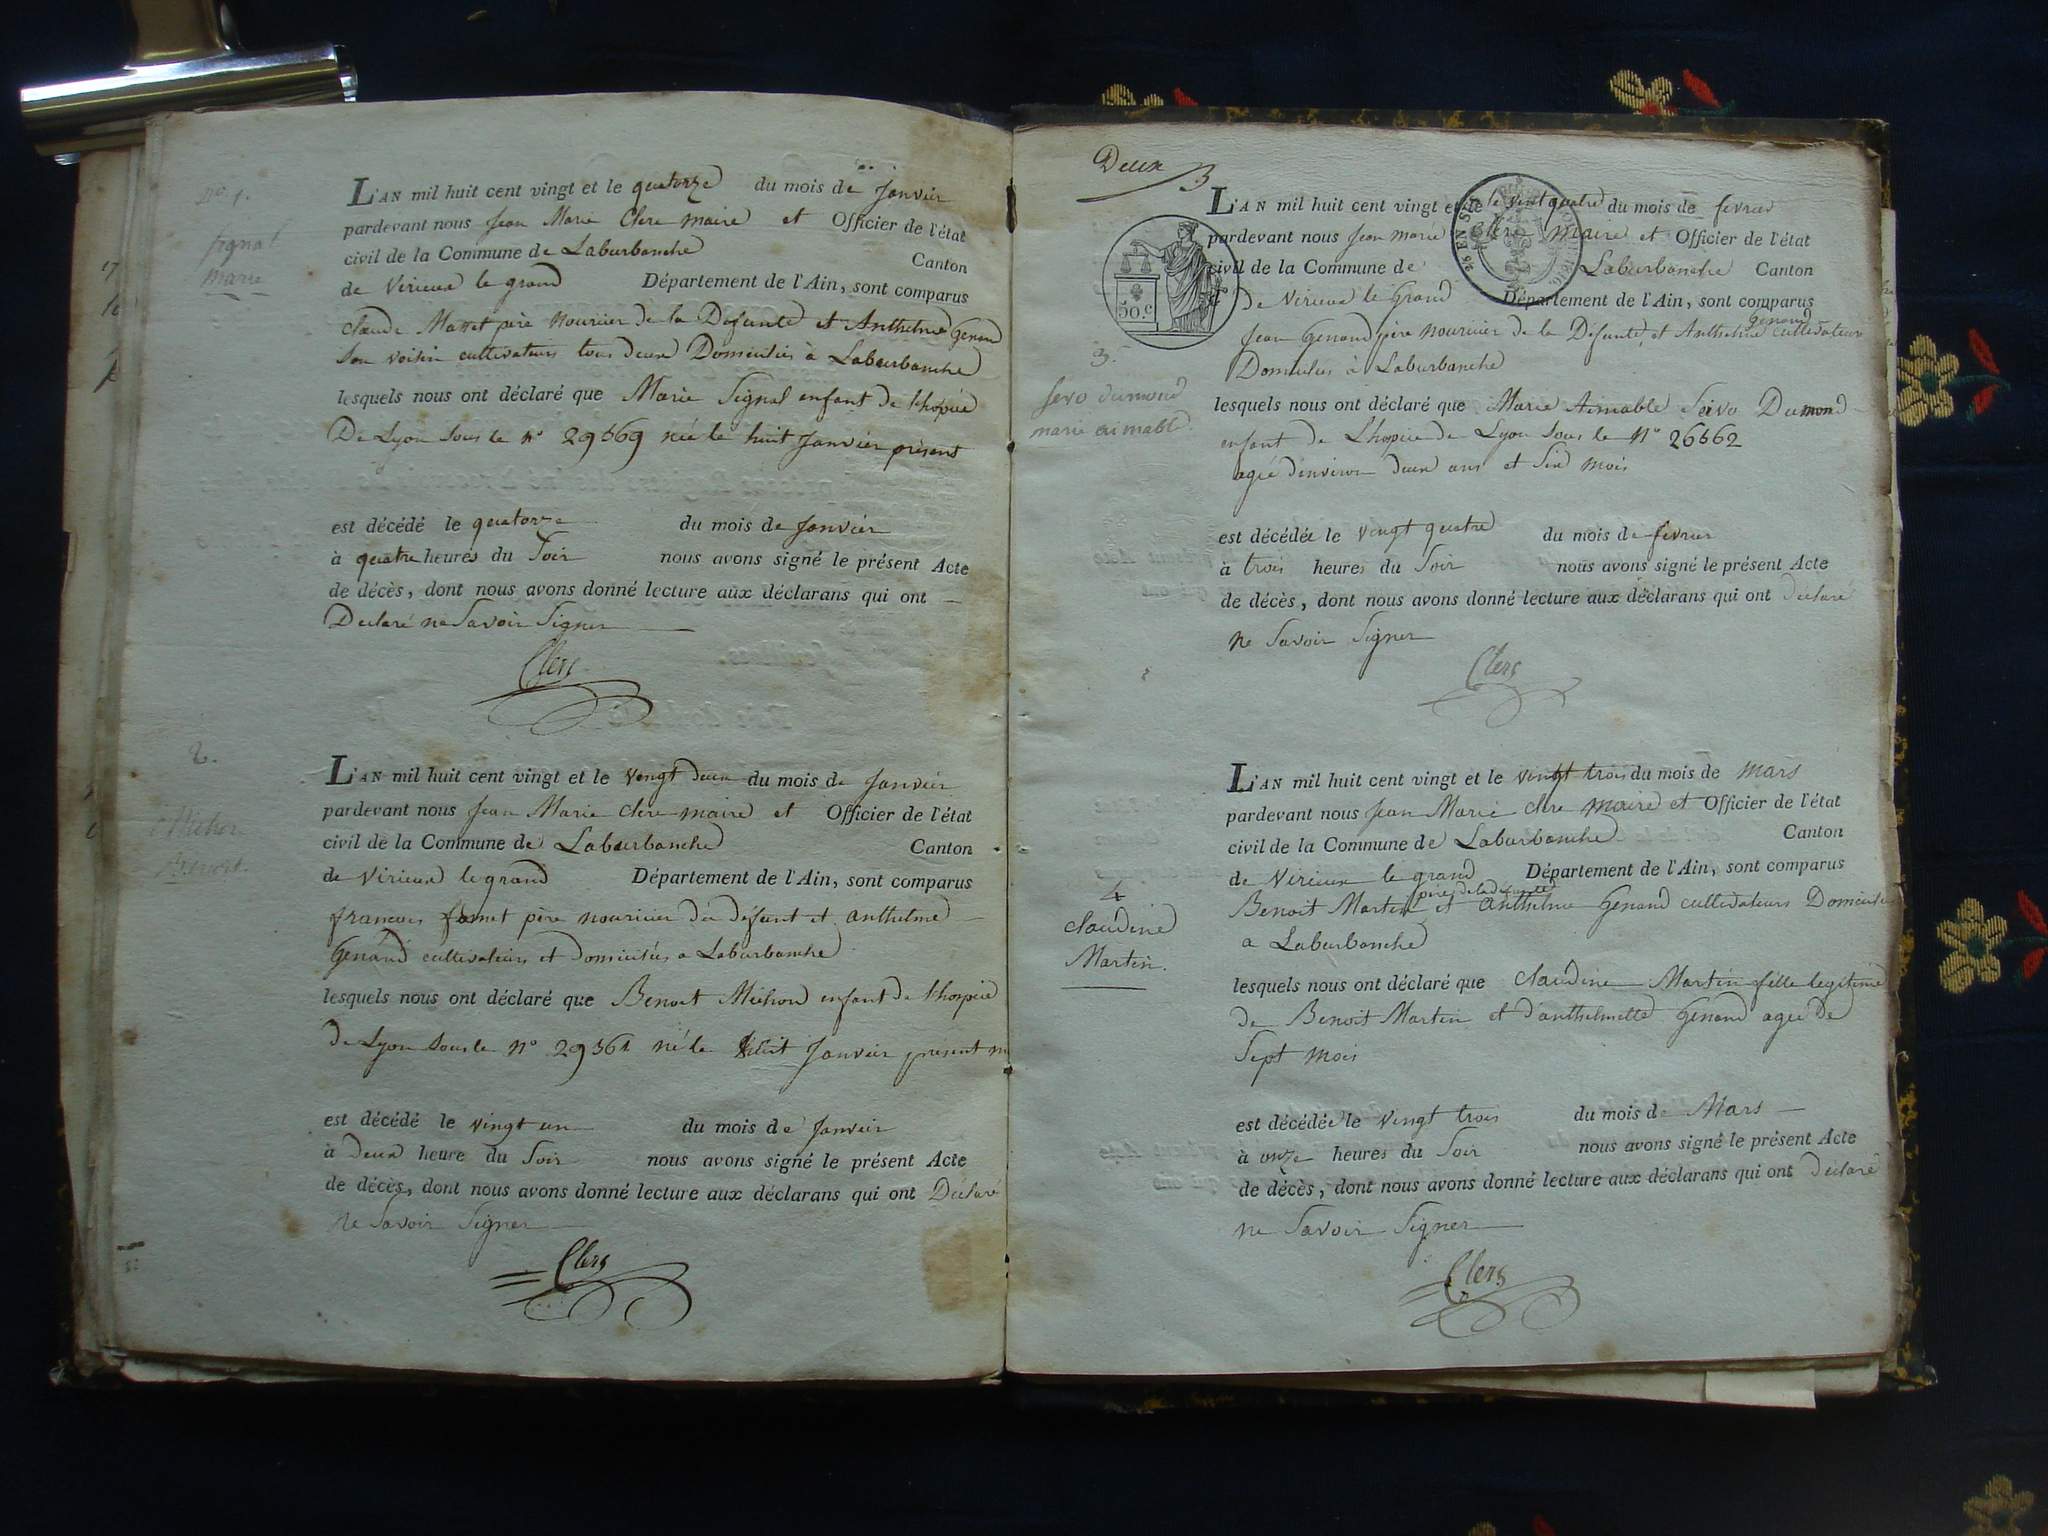 No. 1.
Signal
Marie
L'AN mil huit cent vingt et le quatorze du mois de Janvier
pardevant nous Jean Marie Clerc maire et Officier de l'état
civil de la Commune de Laburbanche Canton
de Virieux le grand Département de l'Ain, sont comparus
Claude Masset père nouricier de la Defunte et Anthelme Genand
Son voisin cultivateurs tous deux Domiciliés à Laburbanche
lesquels nous ont déclaré que Marie Signal enfant de l'hopice
De Lyon Sous le n° 29569 née le huit Janvier présent
est décédé le quatorze du mois de Janvier
à quatre heures du Soir nous avons signé le présent Acte
de décès, dont nous avons donné lecture aux déclarans qui ont
Declaré ne Savoir Signer
Clerc
2.
Michon
Benoit.
L'AN mil huit cent vingt et le vingt deux du mois de Janvier
pardevant nous Jean Marie Clerc maire et Officier de l'état
civil de la Commune de Laburbanche Canton
de Virieux le grand Département de l'Ain, sont comparus
françois père nouricier du défunt et anthelme
Genand cultivateurs et domiciliés a Laburbanche
lesquels nous ont déclaré que Benoit Michon enfant de l'hospice
de Lyon Sous le n° 29561 né le huit Janvier présent m
est décédé le vingt un du mois de Janvier
à Deux heure du Soir nous avons signé le présent Acte
de décès, dont nous avons donné lecture aux déclarans qui ont Déclaré
ne Savoir Signer
Clerc
Deux
50.c
3.
Servo dumond
marie aimable.
L'AN mil huit cent vingt et le le vint quatre du mois de fevrier
pardevant nous Jean marie Clerc Maire et Officier de l'état
civil de la Commune de Laburbanche Canton
de Virieux le Grand Département de l'Ain, sont comparus
Jean Genand père nouricier de la Défunte, et Anthelme Genand cultivateurs
Domiciliés à Laburbanche
lesquels nous ont déclaré que Marie Aimable Servo Dumond
enfant de L'hopice de Lyon Sous le N° 26562
agée d'environ deux ans et Six mois
est décédée le vingt quatre du mois de fevrier
à trois heures du Soir nous avons signé le présent Acte
de décès, dont nous avons donné lecture aux déclarans qui ont Déclaré
ne Savoir Signer
Clerc
4
claudine
Martin.
L'AN mil huit cent vingt et le vingt trois du mois de mars
pardevant nous Jean Marie Clerc maire et Officier de l'état
civil de la Commune de Laburbanche Canton
de Virieux le grand Département de l'Ain, sont comparus
Benoit Martin père de la défunte et anthelme Genand cultivateurs Domiciliés
a Laburbanche
lesquels nous ont déclaré que claudine Martin fille legitime
de Benoit Martin et d'anthelmette Genand agée de
Sept mois
est décédée le vingt trois du mois de Mars
à onze heures du Soir nous avons signé le présent Acte
de décès, dont nous avons donné lecture aux déclarans qui ont déclaré
ne Savoir Signer
Clerc